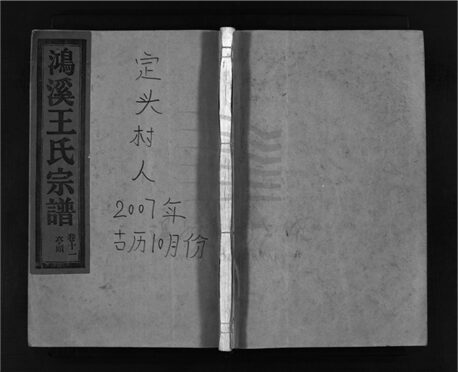 鴻溪王氏宗譜
卷十一
定头村人
2007年
古历10月份